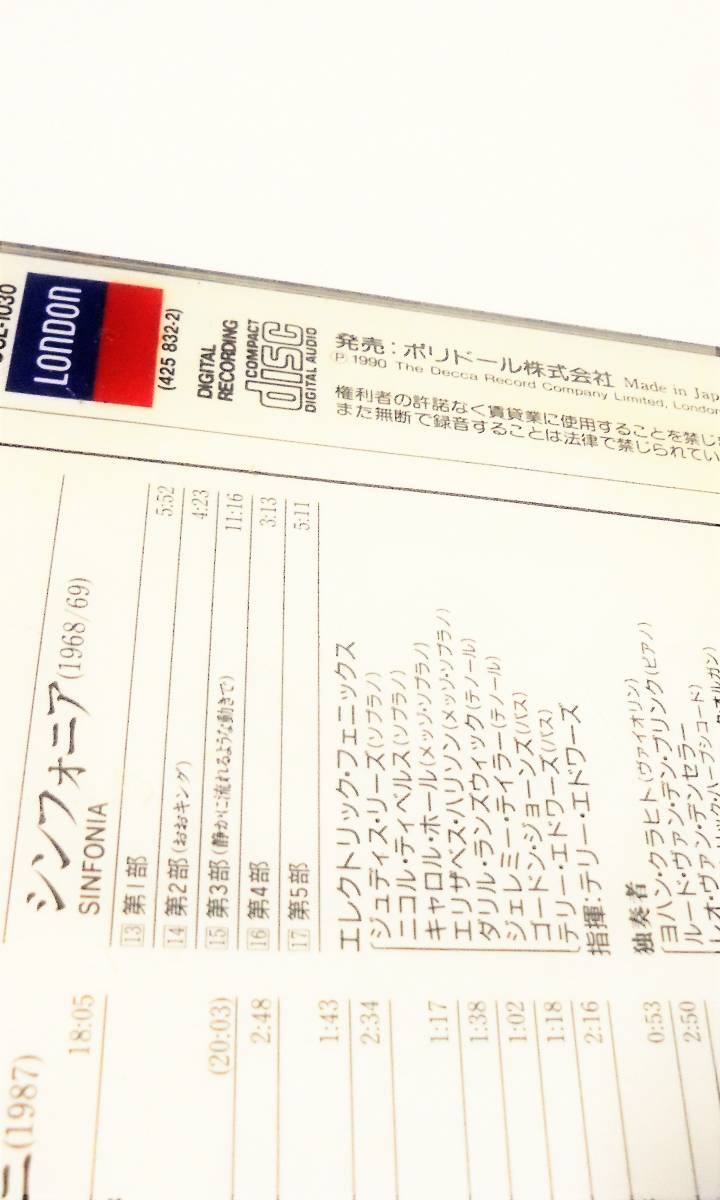 LONDON
(425 832-2)
DIGITAL
RECORDING
COMPACT
disc
DIGITAL AUDIO
発売:ポリドール株式会社 Made in Jap
Ⓟ 1990 The Decca Record Company Limited, London
権利者の許諾なく賃貸業に使用することを禁じ
また無断で録音することは法律で禁じられてい
シンフォニア(1968/69)
SINFONIA
13 第1部 5:52
14 第2部(おおキング) 4:23
15 第3部(静かに流れるような動きで) 11:16
16 第4部 3:13
17 第5部 5:11
エレクトリック・フェニックス
ジュディス・リーズ(ソプラノ)
ニコル・ティベルス(ソプラノ)
キャロル・ホール(メッゾ・ソプラノ)
エリザベス・ハリソン(メッゾ・ソプラノ)
ダリル・ランズウィック(テノール)
ジェレミー・テイラー(テノール)
ゴードン・ジョーンズ(バス)
テリー・エドワーズ(バス)
指揮:テリー・エドワーズ
独奏者
ヨハン・クラヒト(ヴァイオリン)
ルード・ヴァン・デン・ブリンク(ピアノ)
レオ・ヴァン・デンセラー
リック・ハープシコード)
オルガン)
ニ(1987)
18:05
(20:03)
2:48
1:43
2:34
1:17
1:38
1:02
1:18
2:16
0:53
2:50